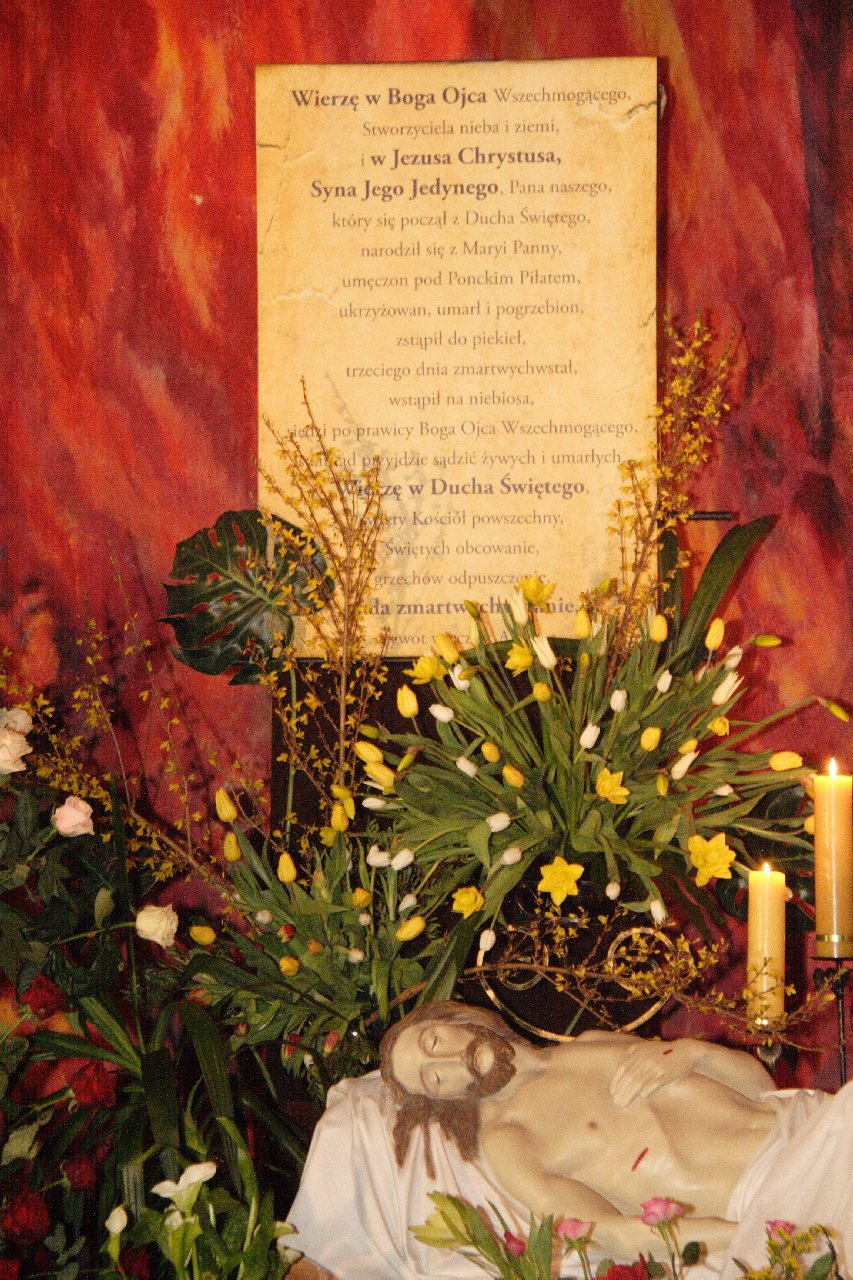 Wierzę w Boga Ojca Wszechmogącego,
Stworzyciela nieba i ziemi,
i w Jezusa Chrystusa,
Syna Jego Jedynego, Pana naszego,
który się począł z Ducha Świętego,
narodził się z Maryi Panny,
umęczon pod Ponckim Piłatem,
ukrzyżowan, umarł i pogrzebion,
zstąpił do piekieł,
trzeciego dnia zmartwychwstał,
wstąpił na niebiosa,
siedzi po prawicy Boga Ojca Wszechmogącego,
przyjdzie sądzić żywych i umarłych.
Wierzę w Ducha Świętego,
Kościół powszechny,
Świętych obcowanie,
grzechów odpuszczenie,